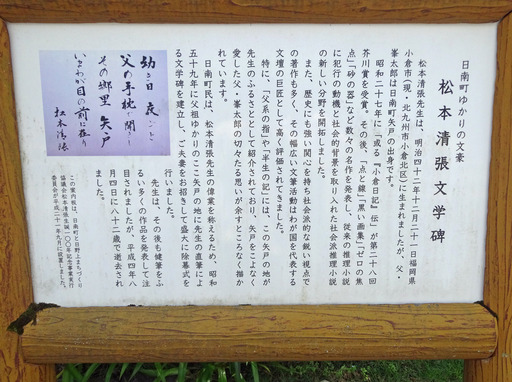 日南町ゆかりの文豪
松本清張文学碑
松本清張先生は、明治四十二年十二月二十一日福岡県
小倉市(現・北九州市小倉北区)に生まれましたが、父・
峯太郎は日南町矢戸の出身です。
昭和二十七年に「或る『小倉日記』伝」が第二十八回
芥川賞を受賞。その後、「点と線」「黒い画集」「ゼロの焦
点」「砂の器」など数々の名作を発表し、従来の推理小説
に犯行の動機と社会的背景を取り入れた社会派推理小説
の新しい分野を開拓しました。
また、歴史にも強い関心を持ち社会派的な鋭い視点で
の著作も多く、その幅広い文筆活動はわが国を代表する
文壇の巨匠として高く評価されてきました。
特に、「父系の指」や「半生の記」には、この矢戸の地が
先生のふるさととして紹介されており、矢戸をこよなく
愛した父・峯太郎の切々たる思いが余すところなく描か
れています。
日南町民は、松本清張先生の偉業を称えるため、昭和
五十九年に父祖ゆかりのここ矢戸の地に先生の直筆によ
る文学碑を建立し、ご夫妻をお招きして盛大に除幕式を
行いました。
先生は、その後も健筆をふ
るい多くの作品を発表して注
目されましたが、平成四年八
月四日に八十二歳で逝去され
ました。
この案内板は、日南町と日野上まちづくり
協議会が松本清張生誕一〇〇年記念事業実行
委員会が平成二十一年九月に設置しました。
幼き日 夜ごと
父の手枕で聞きし
その郷里 矢戸
いまわが目の前に在り
松本清張